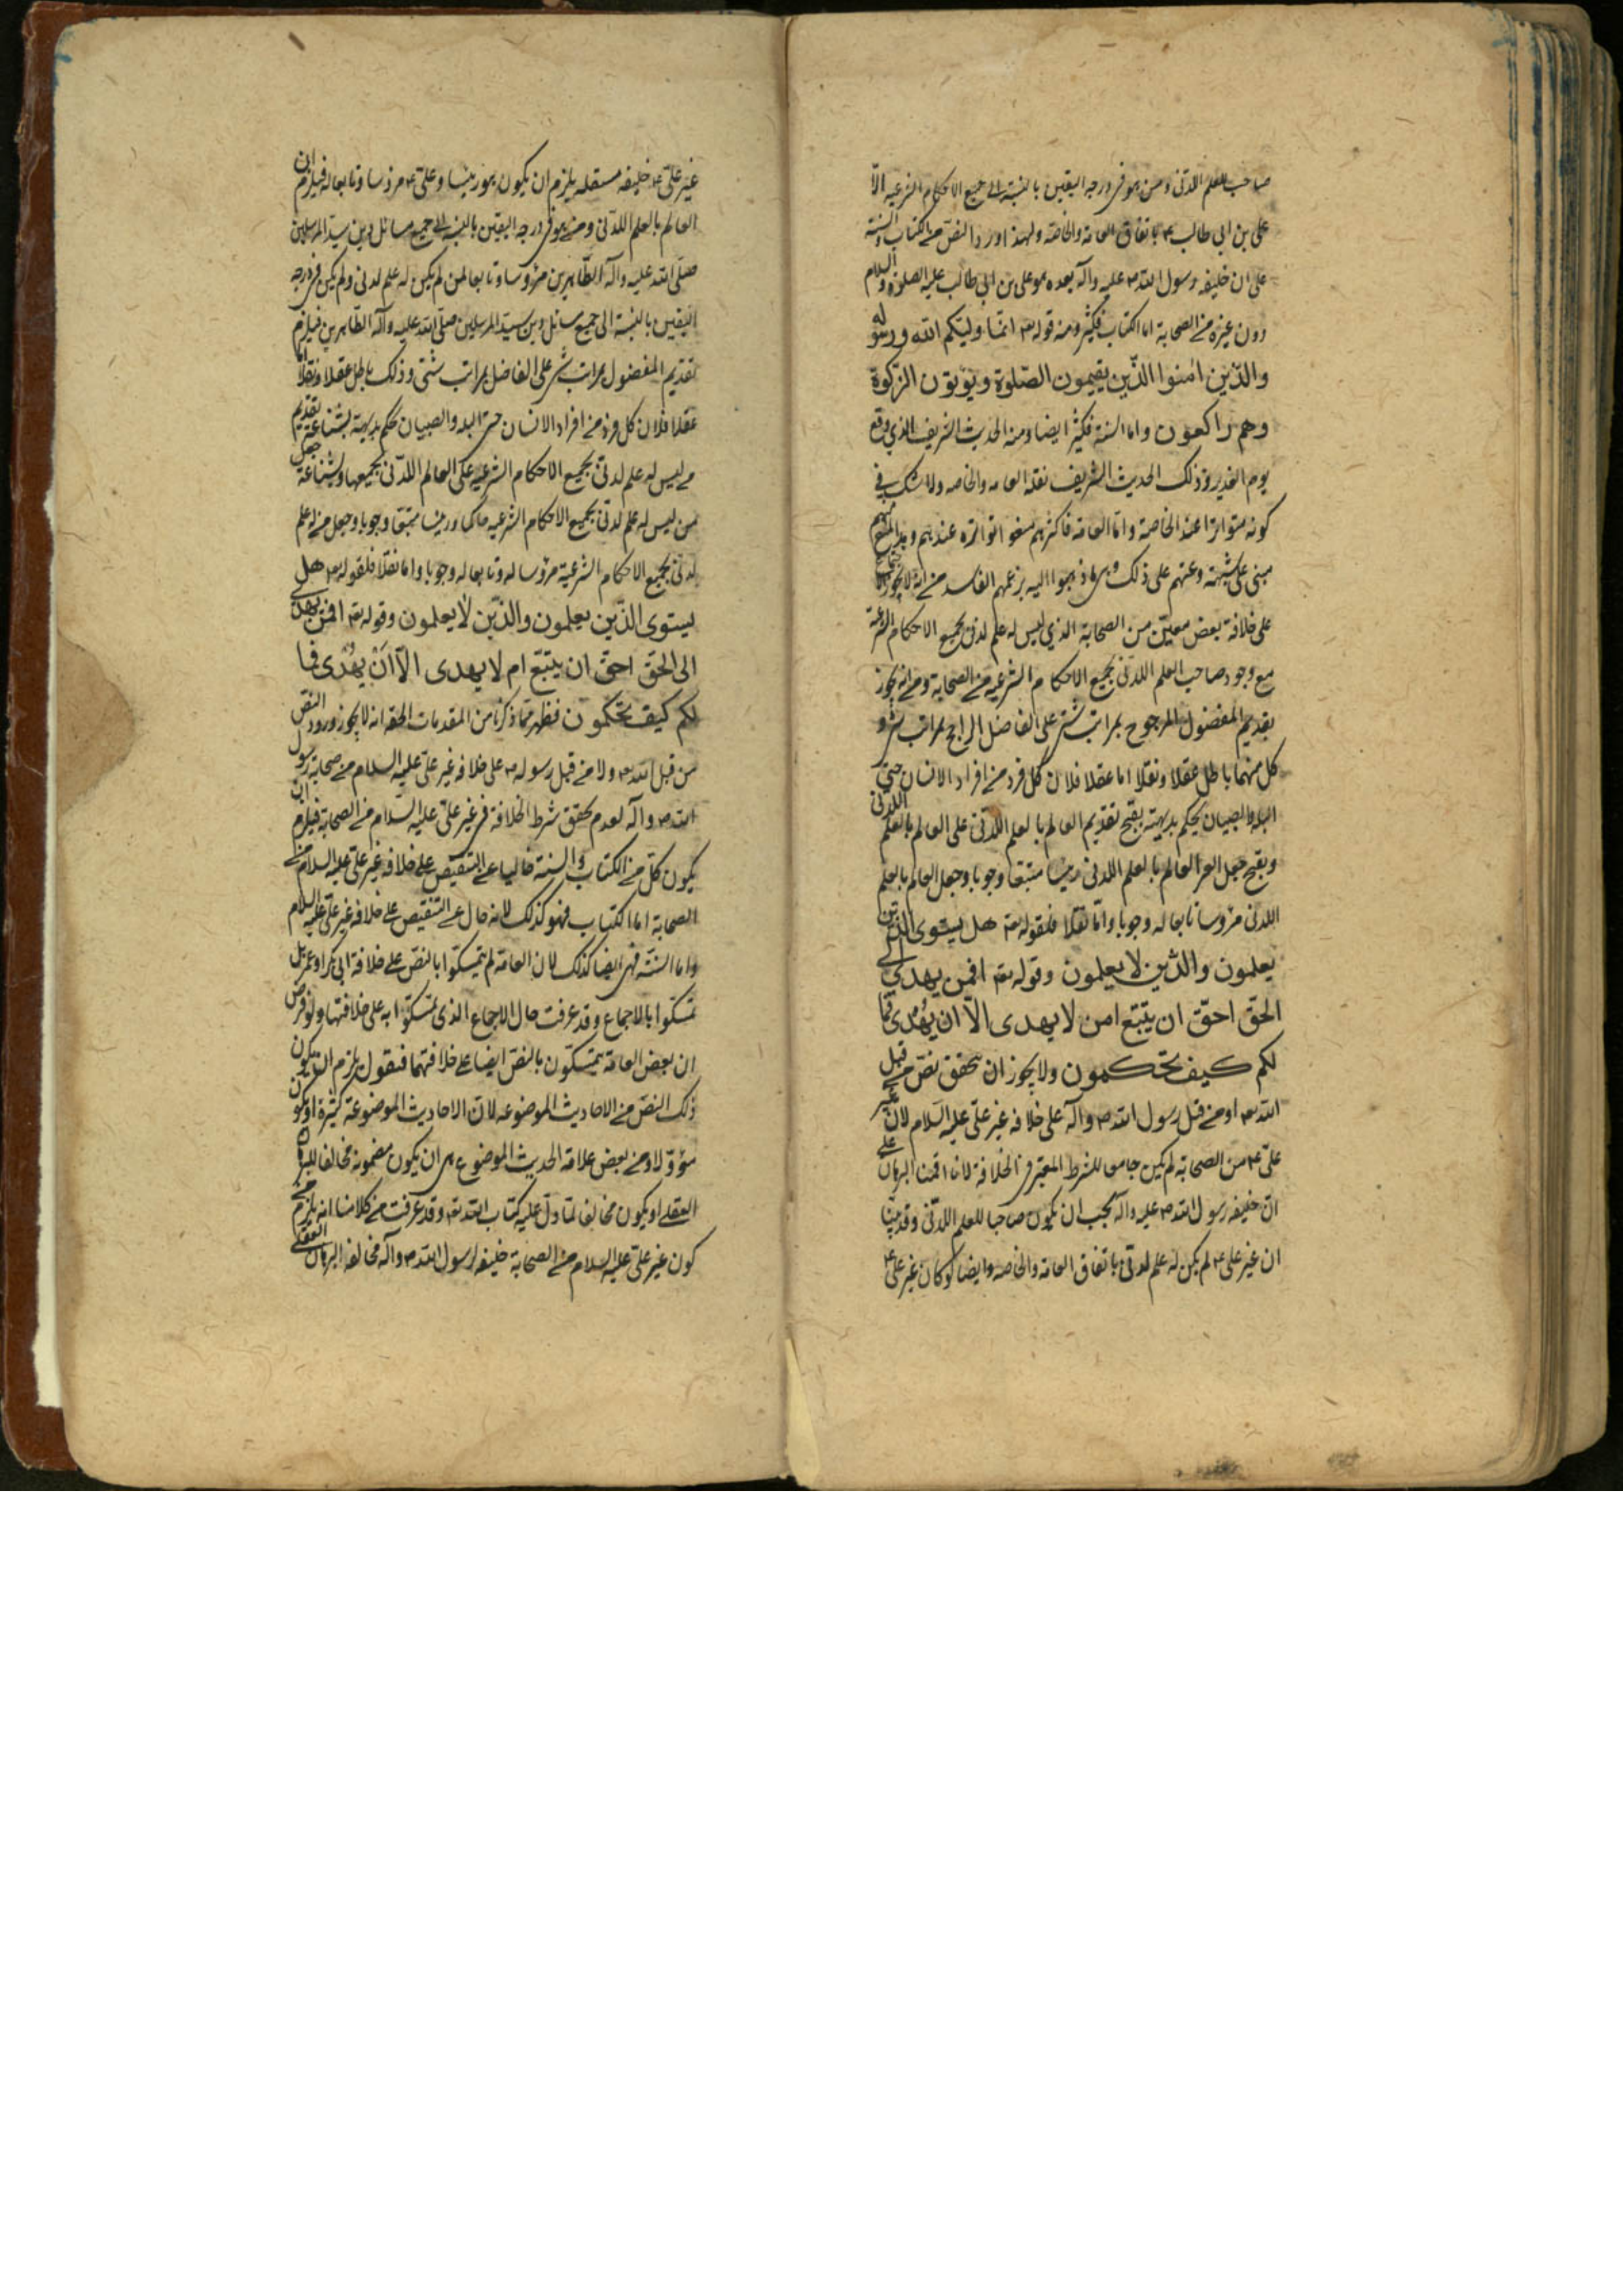 صاحب للعلم اللدنی ومن هو فی درجة الیقین بالنسبة الی جمیع الاحکام الشرعیه الّا
علی بن ابی طالب ع باتفاق العامة والخاصّه ولهذا ورد النصّ من الکتاب والسنة
علی ان خلیفه رسول الله ص علیه وآله بعده هو علی بن ابی طالب علیه الصلوة والسلام
دون غیره من الصحابة اما الکتاب فکثیر ومنه قوله تع انّما ولیّکم الله ورسوله
والّذین امنوا الّذین یقیمون الصّلوة ویؤتون الزّکوة
وهم راکعون واما السنة فکثیر ایضا ومنه الحدیث الشریف الذی وقع
یوم الغدیر وذلک الحدیث الشریف نقله العامه والخاصه ولا شک فی
کونه متواترا عند الخاصة واما العامة فاکثرهم منعوا تواتره عندهم وهذا المنع منهم
مبنی علی شبهة دعتهم علی ذلک وهی ما ذهبوا الیه بزعمهم الفاسد من انه لا یجوز
علی خلافة بعض معیّن من الصحابة الذی لیس له علم لدنی بجمیع الاحکام الشرعیة
مع وجود صاحب العلم اللدنی بجمیع الاحکام الشرعیه من الصحابة ومن انه یجوز
تقدیم المفضول المرجوح بمراتب شتی علی الفاضل الراجح بمراتب شتی و
کل منهما باطل عقلا ونقلا اما عقلا فلان کل فرد من افراد الانسان حتی
البله والصبیان یحکم بدیهته بقبح تقدیم العالم بالعلم اللدنی علی العالم بالعلم اللدنی
وبقبح جعل العالم بالعلم اللدنی رئیسا متبعا وجوبا وجعل العالم بالعلم
اللدنی مرؤسا تابعا له وجوبا وامّا نقلا فلقوله تع هل یستوی الذین
یعلمون والذّین لا یعلمون وقوله تع افمن یهدی الی
الحقّ احقّ ان یتّبع امن لا یهدی الّا ان یهدی فما
لکم کیف تحکمون ولا یجوز ان یتحقق نصّ من قبل
الله تع او من قبل رسول الله ص وآله علی خلافه غیر علیّ علیه السّلام لان غیر
علیّ ع من الصحابة لم یکن جامعا للشرط المعتبر فی الخلافة لانا اقمنا البرهان علی
انّ خلیفه رسول الله ص علیه وآله یجب ان یکون صاحبا للعلم اللدّنی وقد بیّنا
ان غیر علی ع لم یکن له علم لدنّی باتفاق العامه والخاصه وایضا لو کان غیر علی ع
غیر علیّ ع خلیفه مستقله یلزم ان یکون هو رئیسا وعلیّ ع مرؤسا وتابعا له فیلزم ان
العالم بالعلم اللدّنی ومن هو فی درجه الیقین بالنسبة الی جمیع مسائل دین سیّد المرسلین
صلّی الله علیه وآله الطّاهرین مرؤوسا وتابعا لمن لم یکن له علم لدنی ولم یکن فی درجه
الیقین بالنسبة الی جمیع مسائل دین سیّد المرسلین صلّی الله علیه وآله الطّاهرین فیلزم
تقدیم المفضول بمراتب شتی علی الفاضل بمراتب شتّی وذلک باطل عقلا ونقلا امّا
عقلا فلان کل فرد من افراد الانسان حتی البله والصبیان حکم بدیهیة بشناعة تقدیم
من لیس له علم لدنی بجمیع الاحکام الشرعیه علی العالم اللدّنی بجمیعها وشناعة جعل
من لیس له علم لدنی بجمیع الاحکام الشرعیه حاکما ورئیسا متبعا وجوبا وجعل من له علم
لدنّی بجمیع الاحکام الشرعیة مرؤسا له وتابعا له وجوبا واما نقلا فلقوله تع هل
یستوی الّذین یعلمون والذّین لا یعلمون وقوله تع افمن یهدی
الی الحقّ احقّ ان یتّبع ام لا یهدی الّا أَنْ یهدی فما
لکم کیف تحکمون فظهر ممّا ذکرنا من المقدمات الحقه انه لا یجوز ورود النصّ
من قبل الله تع ولا من قبل رسوله ص علی خلافه غیر علیّ علیه السلام من صحابة رسول
الله ص وآله لعدم تحقق شرط الخلافة فی غیر علیّ علیه السّلام من الصحابة فیلزم ان
یکون کلّ من الکتاب والسنة خالیا عن التنقیص علی خلافه غیر علیّ علیه السلام من
الصحابة اما الکتاب فهو کذلک لانه خال عن التنقیص علی خلافه غیر علیّ علیه السلام
واما السنّة فهی ایضا کذلک لان العامة لم یتمسّکوا بالنصّ علی خلافة ابی بکر او عمر بل
تمسّکوا بالاجماع وقد عرفت حال الاجماع الذی تمسّکوا به علی خلافتهما ولو فرض
ان بعض العامة یتمسّکون بالنصّ ایضا علی خلافتهما فنقول یلزم ان یکون
ذلک النصّ من الاحادیث الموضوعه لانّ الاحادیث الموضوعة کثیرة او یکون
مؤوّلا ومن بعض علامة الحدیث الموضوع هی ان یکون مضمونه مخالفا للبرهان
العقلی او یکون مخالفا لما دلّ علیه کتاب الله تع وقد عرفت من کلامنا انه یلزم من
کون غیر علیّ علیه السلام من الصحابة خلیفه لرسول الله ص وآله مخالفه البرهان العقلی